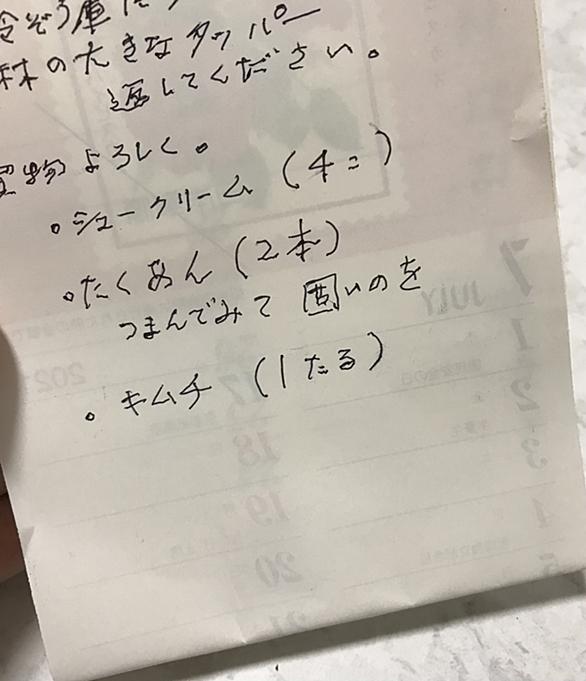 冷ぞう庫に
林の大きなタッパー
返してください。
買物よろしく。
・シュークリーム (4コ)
・たくあん (2本)
つまんでみて 固いのを
・キムチ (1たる)
7
JULY
1
2
3
4
5
17
18
19
20
21
202